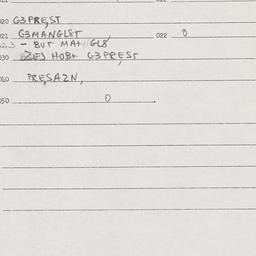 020 G3PRE,ST
021 G3MANGL8T 022 0
023 - BUT MA+ GL8
030 ZEJ HOB+ G3PRE,ST
060 PRE,SAZN,
050 0 .